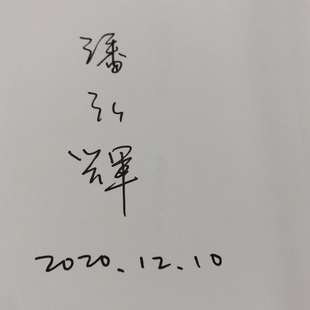 潘
弘
輝
2020.12.10